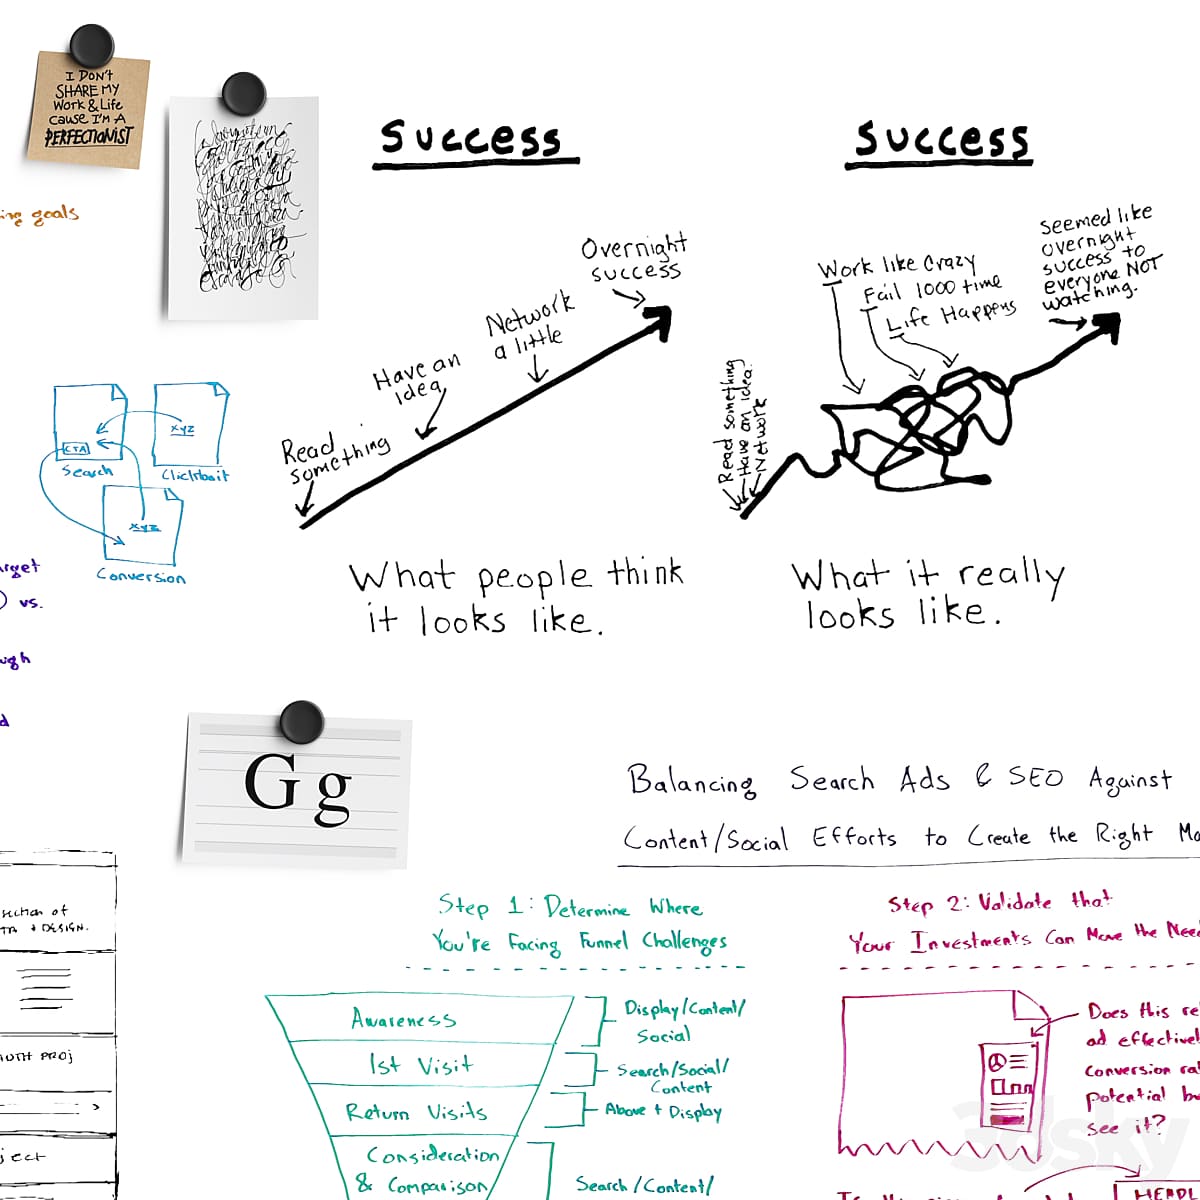 I DON'T
SHARE MY
WORK & LIFE
CAUSE I'M A
PERFECTIONIST
goals
Success
Read
something
Have an
idea
Network
a little
Overnight
success
What people think
it looks like.
Success
Read something
Have an idea.
Network
Work like Crazy
Fail 1000 time
Life Happens
seemed like
overnight
success to
everyone NOT
watching.
What it really
looks like.
CTA
Search
XYZ
Clickbait
XYZ
Conversion
vs.
G g
Balancing Search Ads & SEO Against
Content/Social Efforts to Create the Right
Step 1: Determine Where
You're Facing Funnel Challenges
Awareness
1st Visit
Return Visits
Consideration
& Comparison
Display/Content/
Social
Search/Social/
Content
Above + Display
Search/Content/
Step 2: Validate that
Your Investments Can Move the
Does this
ad
conversion
potential
see it?
of
+ DESIGN.
PROJ
3dsky